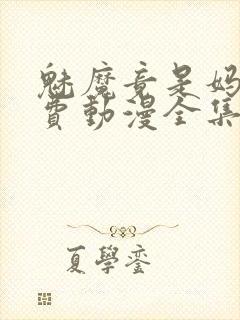 魅魔竟是妈
费動漫全集
夏學銮